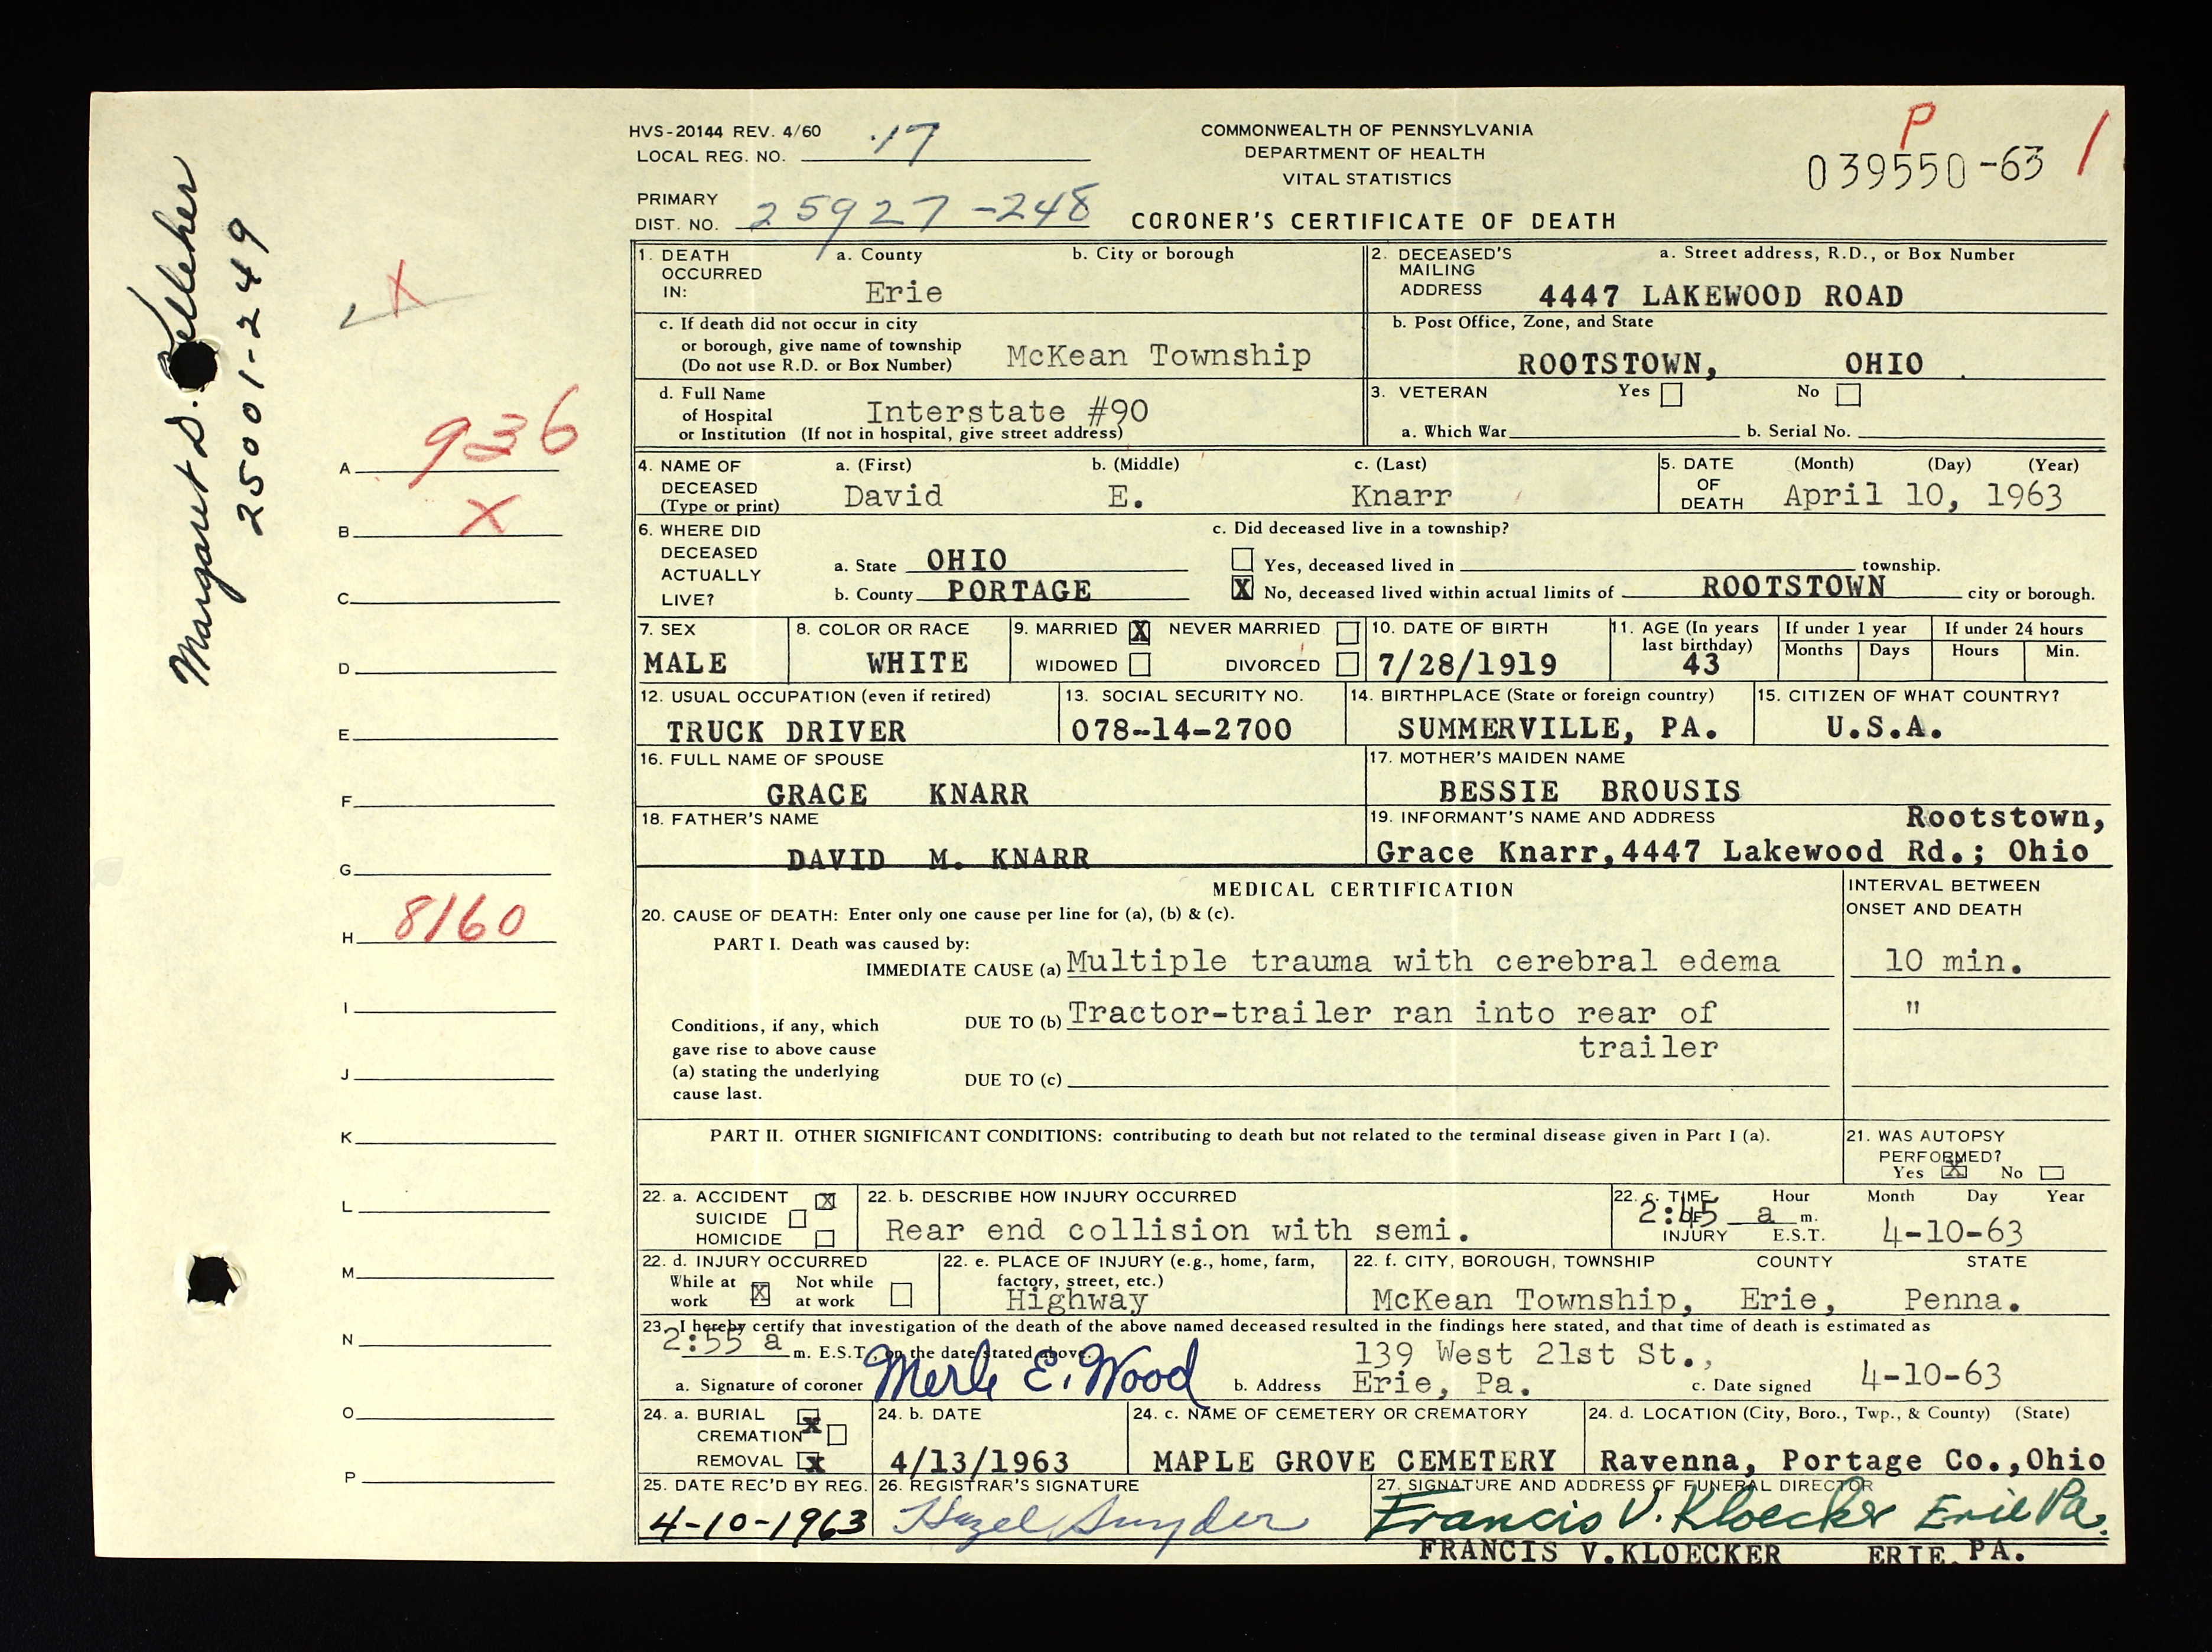 HVS-20144 REV. 4/60
LOCAL REG. NO. 17
COMMONWEALTH OF PENNSYLVANIA
DEPARTMENT OF HEALTH
VITAL STATISTICS
P
039550-63
PRIMARY
DIST. NO. 25927-248
CORONER'S CERTIFICATE OF DEATH
Margaret D. Kelleher
25001-249
X
A 936
B X
C
D
E
F
G
H 8160
I
J
K
L
M
N
O
P
1. DEATH OCCURRED IN: a. County Erie b. City or borough
2. DECEASED'S MAILING ADDRESS a. Street address, R.D., or Box Number 4447 LAKEWOOD ROAD
c. If death did not occur in city
or borough, give name of township
(Do not use R.D. or Box Number) McKean Township
b. Post Office, Zone, and State
ROOTSTOWN, OHIO
d. Full Name
of Hospital
or Institution (If not in hospital, give street address) Interstate #90
3. VETERAN Yes No
a. Which War b. Serial No.
4. NAME OF DECEASED (Type or print) a. (First) David b. (Middle) E. c. (Last) Knarr
5. DATE OF DEATH (Month) (Day) (Year) April 10, 1963
6. WHERE DID DECEASED ACTUALLY LIVE?
a. State OHIO
b. County PORTAGE
c. Did deceased live in a township?
Yes, deceased lived in township.
X No, deceased lived within actual limits of ROOTSTOWN city or borough.
7. SEX MALE
8. COLOR OR RACE WHITE
9. MARRIED X NEVER MARRIED
WIDOWED DIVORCED
10. DATE OF BIRTH 7/28/1919
11. AGE (In years last birthday) 43
If under 1 year Months Days
If under 24 hours Hours Min.
12. USUAL OCCUPATION (even if retired) TRUCK DRIVER
13. SOCIAL SECURITY NO. 078-14-2700
14. BIRTHPLACE (State or foreign country) SUMMERVILLE, PA.
15. CITIZEN OF WHAT COUNTRY? U.S.A.
16. FULL NAME OF SPOUSE
GRACE KNARR
17. MOTHER'S MAIDEN NAME
BESSIE BROUSIS
18. FATHER'S NAME
DAVID M. KNARR
19. INFORMANT'S NAME AND ADDRESS Rootstown,
Grace Knarr,4447 Lakewood Rd.; Ohio
MEDICAL CERTIFICATION
INTERVAL BETWEEN
ONSET AND DEATH
20. CAUSE OF DEATH: Enter only one cause per line for (a), (b) & (c).
PART I. Death was caused by:
IMMEDIATE CAUSE (a) Multiple trauma with cerebral edema 10 min.
Conditions, if any, which
gave rise to above cause
(a) stating the underlying
cause last.
DUE TO (b) Tractor-trailer ran into rear of "
trailer
DUE TO (c)
PART II. OTHER SIGNIFICANT CONDITIONS: contributing to death but not related to the terminal disease given in Part I (a).
21. WAS AUTOPSY
PERFORMED?
Yes X No
22. a. ACCIDENT X
SUICIDE
HOMICIDE
22. b. DESCRIBE HOW INJURY OCCURRED
Rear end collision with semi.
22. c. TIME OF INJURY Hour 2:45 a m. E.S.T.
Month Day Year
4-10-63
22. d. INJURY OCCURRED
While at work X Not while at work
22. e. PLACE OF INJURY (e.g., home, farm,
factory, street, etc.)
Highway
22. f. CITY, BOROUGH, TOWNSHIP COUNTY STATE
McKean Township, Erie, Penna.
23. I hereby certify that investigation of the death of the above named deceased resulted in the findings here stated, and that time of death is estimated as
2:55 a m. E.S.T., on the date stated above.
a. Signature of coroner Merle E. Wood
b. Address 139 West 21st St.,
Erie, Pa.
c. Date signed 4-10-63
24. a. BURIAL X
CREMATION
REMOVAL X
24. b. DATE
4/13/1963
24. c. NAME OF CEMETERY OR CREMATORY
MAPLE GROVE CEMETERY
24. d. LOCATION (City, Boro., Twp., & County) (State)
Ravenna, Portage Co.,Ohio
25. DATE REC'D BY REG.
4-10-1963
26. REGISTRAR'S SIGNATURE
Hazel Snyder
27. SIGNATURE AND ADDRESS OF FUNERAL DIRECTOR
Francis V. Kloecker Erie Pa.
FRANCIS V.KLOECKER ERIE, PA.